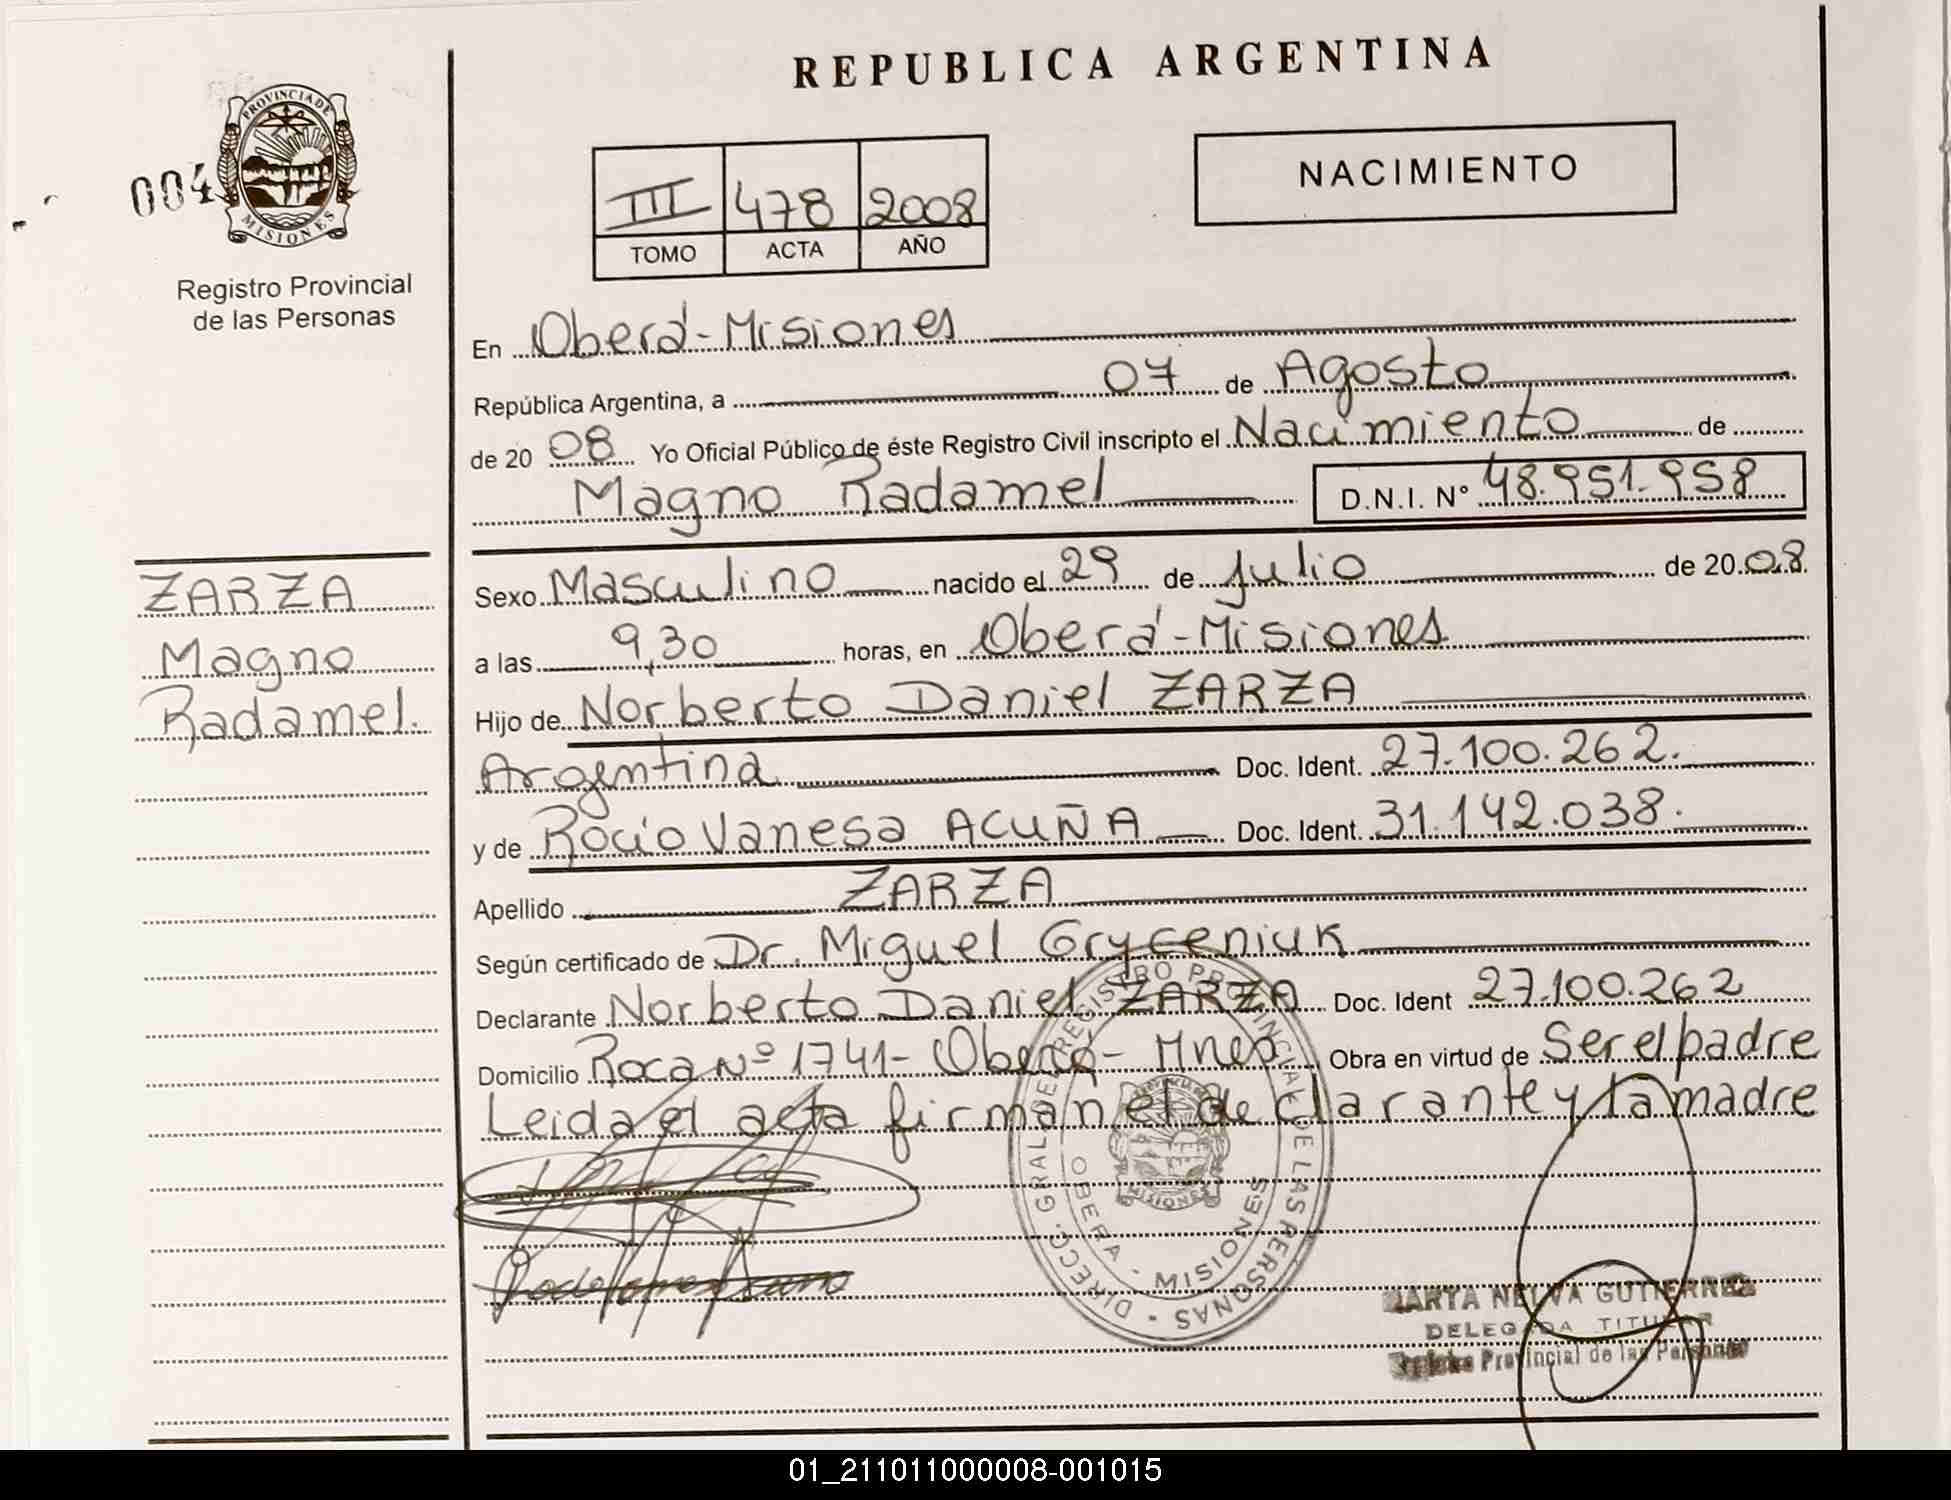 REPUBLICA ARGENTINA
PROVINCIA DE
MISIONES
004
Registro Provincial
de las Personas
III 478 2008
TOMO ACTA AÑO
NACIMIENTO
En Oberá-Misiones
República Argentina, a 07 de Agosto
de 20 08 Yo Oficial Público de éste Registro Civil inscripto el Nacimiento de
Magno Radamel D.N.I. N° 48.951.958
ZARZA
Magno
Radamel.
Sexo Masculino nacido el 29 de Julio de 20 08.
a las 9,30 horas, en Oberá-Misiones
Hijo de Norberto Daniel ZARZA
Argentina Doc. Ident. 27.100.262.
y de Rocío Vanesa ACUÑA Doc. Ident. 31.142.038.
Apellido ZARZA
Según certificado de Dr. Miguel Gryceniuk
Declarante Norberto Daniel ZARZA Doc. Ident 27.100.262
Domicilio Roca Nº 1741- Oberá- Mnes Obra en virtud de Ser el padre
Leida el acta firman el declarante y la madre
DIRECC. GRAL. DE REGISTRO PROVINCIAL DE LAS PERSONAS
OBERA - MISIONES
MISIONES
MARTA NELVA GUTIERREZ
DELEGADA TITULAR
Provincial de las Personas
01_211011000008-001015